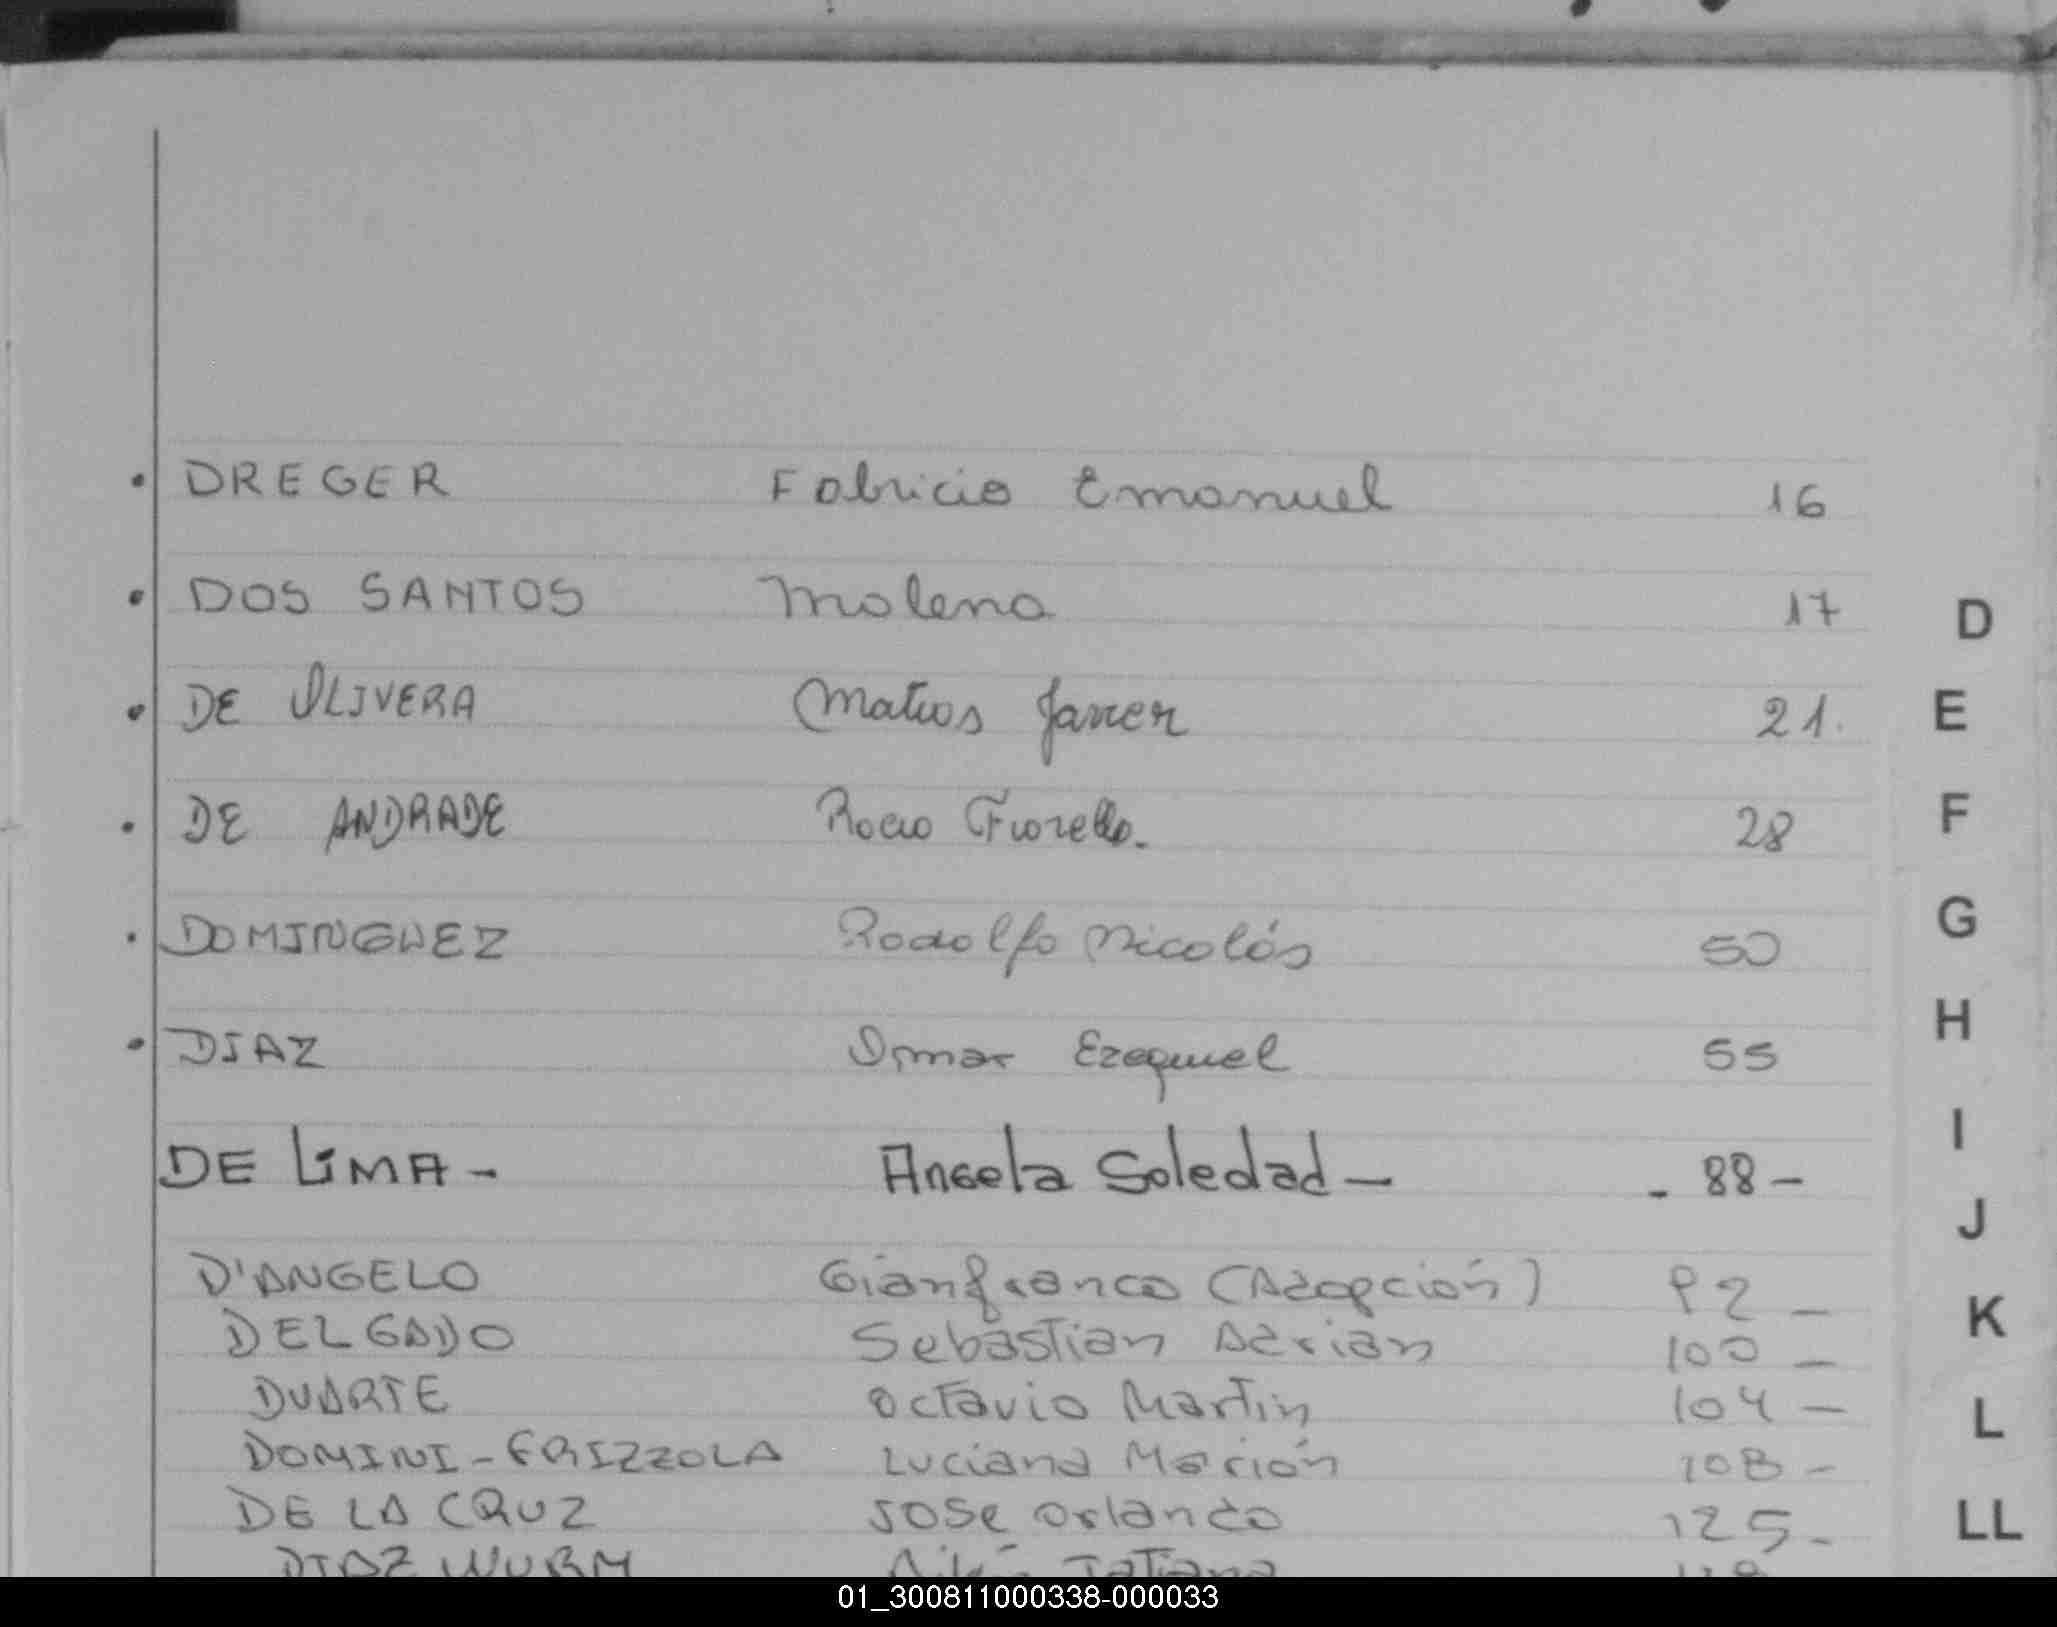 • DREGER Fabricio Emanuel 16
• DOS SANTOS Molena 17
D
• DE OLIVERA Matias Javier 21.
E
• DE ANDRADE Rocio Fiorella. 28
F
• DOMINGUEZ Rodolfo Nicolás 50
G
H
• DIAZ Omar Ezequiel 55
I
DE LIMA - Angela Soledad - - 88 -
J
D'ANGELO Gianfranco (Adopción) 92 -
K
DELGADO Sebastian Adrian 100 -
DUARTE Octavio Martin 104 -
L
DOMINI - FRIZZOLA Luciana Marión 108 -
DE LA CRUZ JOSE Orlando 125 -
LL
DIAZ WURM Tatiana
01_300811000338-000033